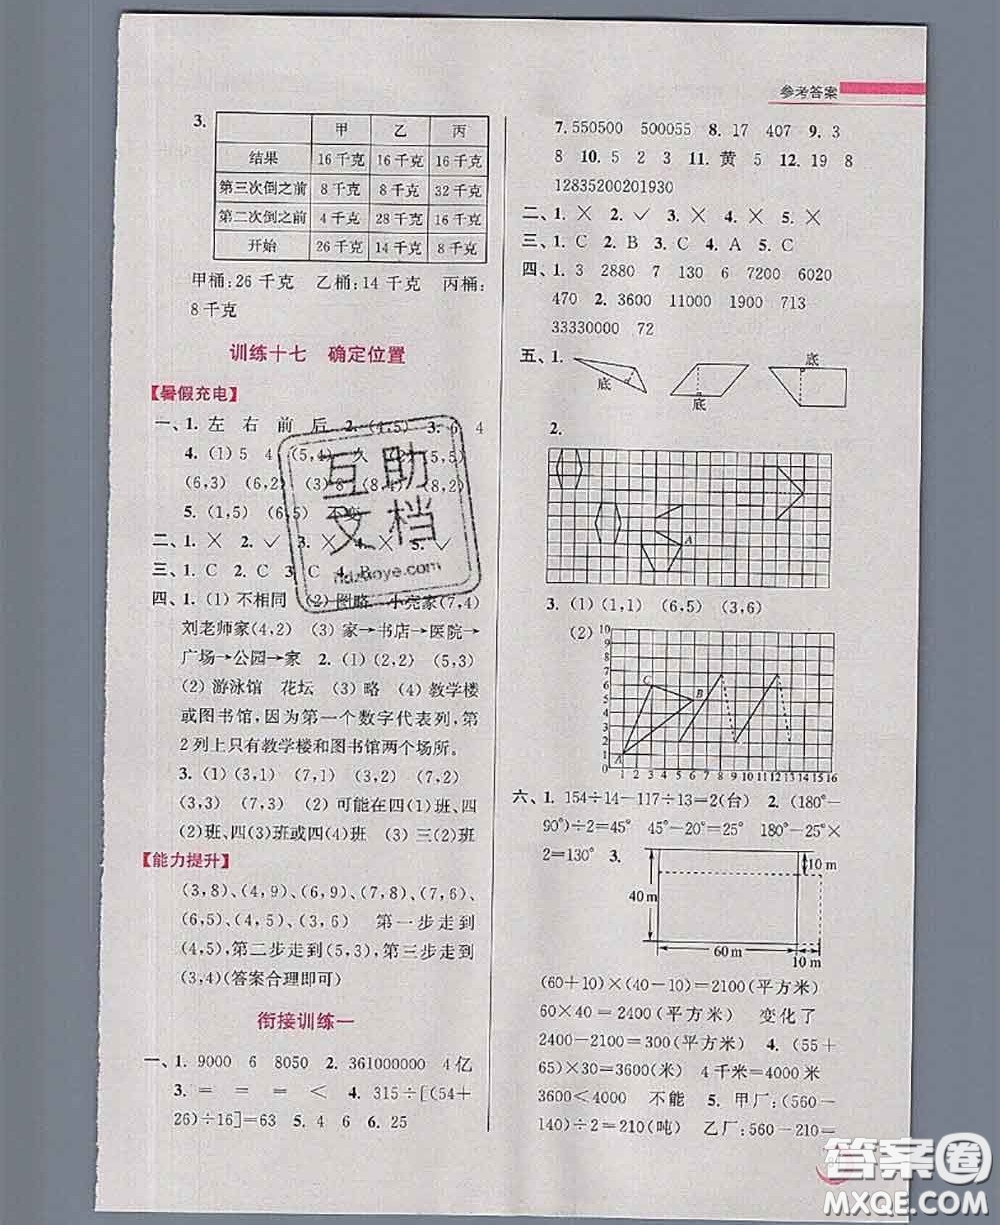 参考答案
3.
甲 乙 丙
结果 16 千克 16 千克 16 千克
第三次倒之前 8 千克 8 千克 32 千克
第二次倒之前 4 千克 28 千克 16 千克
开始 26 千克 14 千克 8 千克
甲桶:26 千克 乙桶:14 千克 丙桶:
8 千克
训练十七 确定位置
【暑假充电】
一、1. 左 右 前 后 2. (4,5) 3. 6 4
4. (1) 5 4 (5,4) 久 (5,5)
(6,3) (6,2) (3) 8 (8,4) (8,2)
5. (1,5) (6,5)
二、1. × 2. ✓ 3. × 4. × 5. ✓
三、1. C 2. C 3. C 4. B
四、1. (1) 不相同 (2) 图略 小亮家(7,4)
刘老师家(4,2) (3) 家→书店→医院→
广场→公园→家 2. (1) (2,2) (5,3)
(2) 游泳馆 花坛 (3) 略 (4) 教学楼
或图书馆,因为第一个数字代表列,第
2 列上只有教学楼和图书馆两个场所。
3. (1) (3,1) (7,1) (7,2)
(4,2) (2) 可能在四(1)班、四
(2)班、四(3)班或四(4)班 (3) 三(2)班
【能力提升】
(3,8)、(4,9)、(6,9)、(7,8)、(7,6)、
(6,5)、(4,5)、(3,6) 第一步走到
(4,5),第二步走到(5,3),第三步走到
(3,4)(答案合理即可)
衔接训练一
一、1. 9000 6 8050 2. 361000000 4亿
3. = = = < 4. 315÷[(54+
26)÷16]=63 5. 4 6 6. 25
7. 550500 500055 8. 17 407 9. 3
8 10. 5 2 3 11. 黄 5 12. 19 8
12835200201930
二、1. × 2. ✓ 3. × 4. × 5. ×
三、1. C 2. B 3. C 4. A 5. C
四、1. 3 2880 7 130 6 7200 6020
470 2. 3600 11000 1900 713
33330000 72
五、1. 底 底 底
2.
A
3. (1) (1,1) (6,5) (3,6)
(2)
10
9
8
7
6
5
4
3
2
1
0
A B C
1 2 3 4 5 6 7 8 9 10 11 12 13 14 15 16
六、1. 154÷14-117÷13=2(台) 2. (180°-
90°)÷2=45° 45°-20°=25° 180°-25°×
2=130° 3.
10 m
40 m
60 m
10 m
(60+10)×(40-10)=2100(平方米)
60×40=2400(平方米) 变化了
2400-2100=300(平方米) 4. (55+
65)×30=3600(米) 4千米=4000米
3600<4000 不能 5. 甲厂:(560-
140)÷2=210(吨) 乙厂:560-210=
互助
文档
答案圈
MXQE.COM